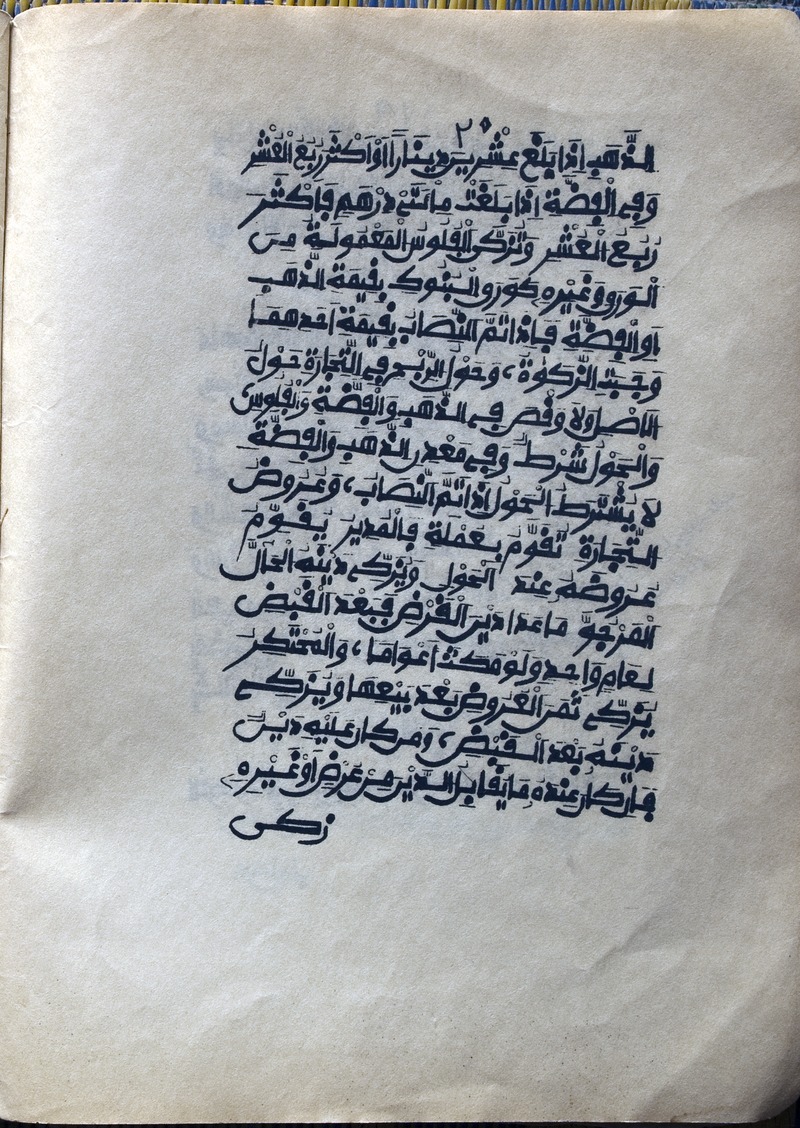 ٢٥
الذَّهب اذا بلغ عشرين دينارا اوْ اكثر ربع العشر
وفي الفضّة اذا بلغتْ مائتيْ درهم فاكثر
ربع العشر وتزكى الفلوس المعْمولة من
الورق وغيره كورق البنوك بقيمة الذهب
او الفضّة فإذا تمّ النّصاب بقيمة احدهما
وجبت الزّكوة، وحوْل الرّبح في التّجارة حوْل
الاصل ولا وقص في الذّهب والفضّة والفلوس
والحوْل شرْط وفي معْدن الذّهب والفضّة
لا يشْترط الحوْل اذا تمّ النّصاب، وعروض
التّجارة تقوّم بعملة فالمدير يقوّم
عروضه عند الحوْل ويزكّي دينه الحالّ
المرْجوّ ما عدا ديْن القرْض فبعْد القبْض
لعام واحد ولو مكث أعْواما، والمحْتكر
يزكّي ثمن العروض بعْد بيْعها ويزكّي
ديْنه بعْد القبْض، ومن كان عليْه ديْن
فإن كان عنده ما يقابل الدّين من عرْض اوْ غيْره
زكى